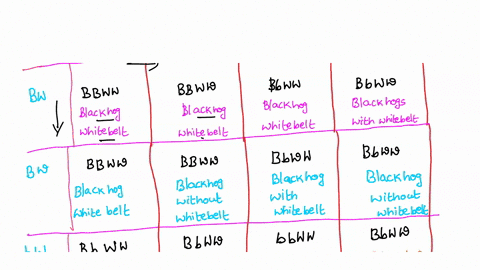 BW
BBWW
Black hog
white belt
BBWw
Black hog
white belt
BbWW
Black hog
white belt
BbWw
Black hogs
with white belt
Bw
BBWw
Black hog
white belt
BBww
Black hog
without
white belt
BbWw
Black hog
with
white belt
Bbww
Black hog
without
white belt
bW
BbWW
BbWw
bbWW